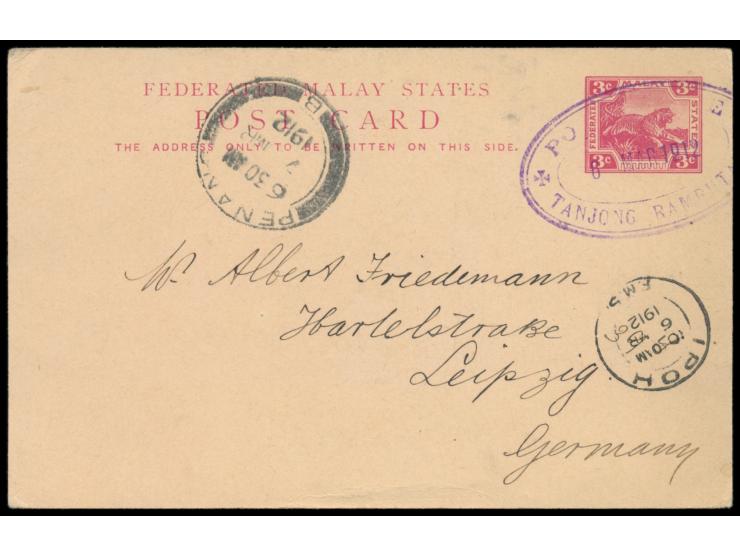 FEDERATED MALAY STATES
POST CARD
THE ADDRESS ONLY TO BE WRITTEN ON THIS SIDE.
3c MALAY 3c
FEDERATED
STATES
3c 3c
PO E
6 MAR 1912
TANJONG RAMBUTA
PENANG B
6 30 AM
7
MR
1912
Mr Albert Friedemann
Hartelstraße
Leipzig.
Germany
IPOH
F.M.S
10 30 AM
6
MR
1912